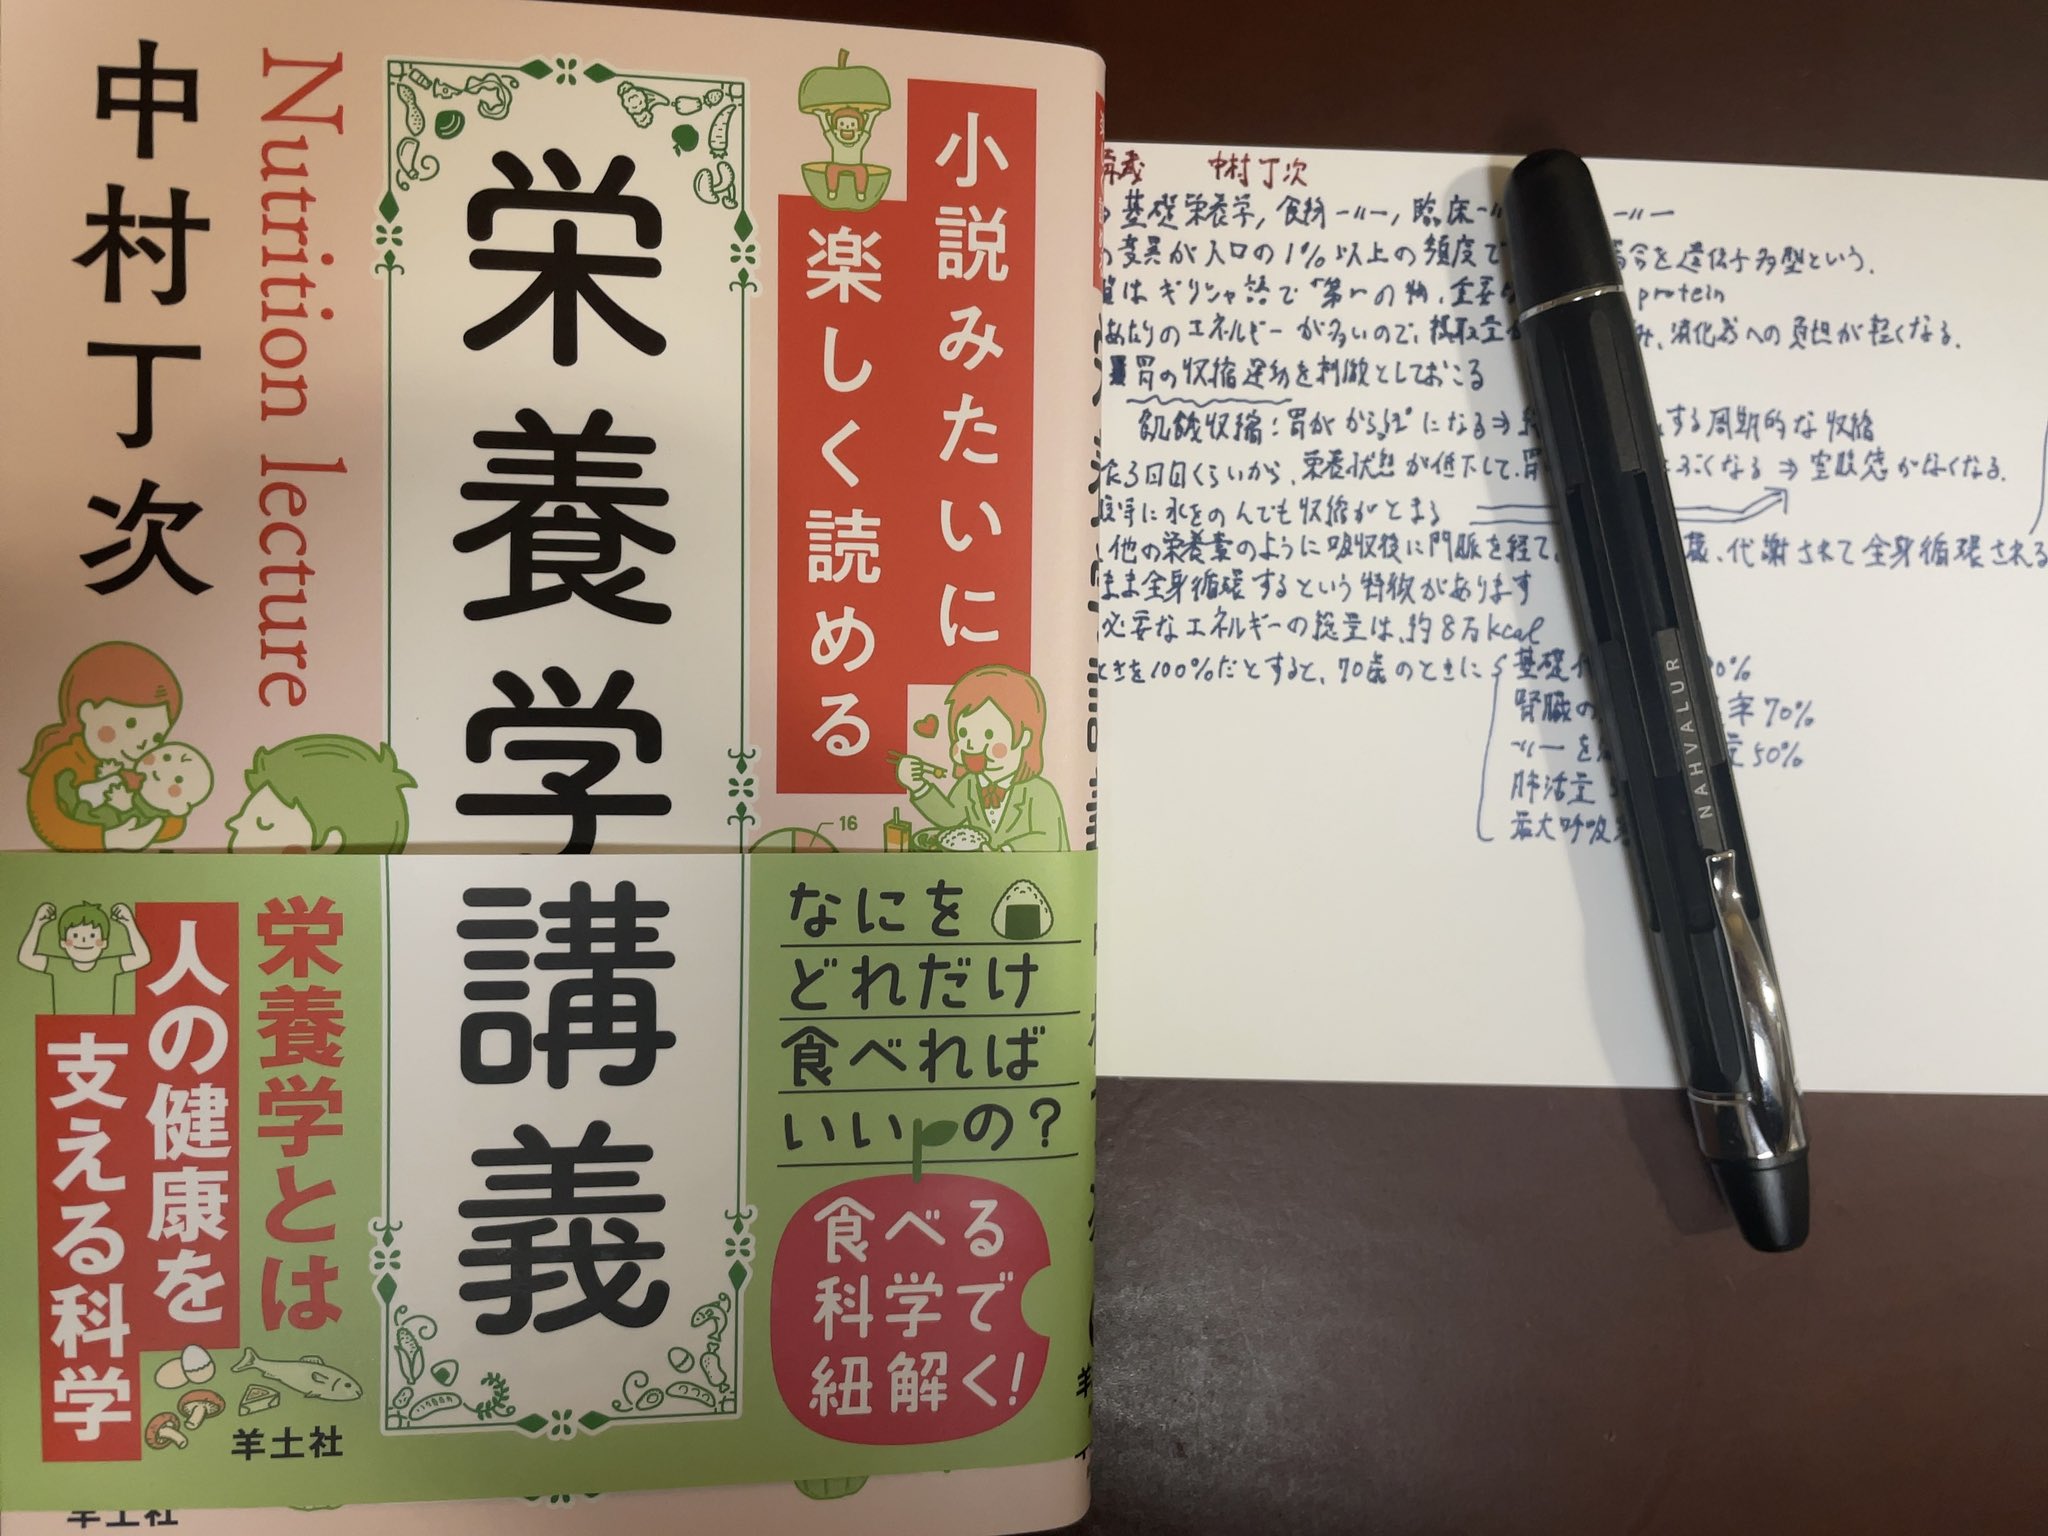 小説みたいに
楽しく読める
栄養学講義
Nutrition lecture
中村丁次
16
なにを
どれだけ
食べれば
いいの?
食べる
科学で
紐解く!
栄養学とは
人の健康を
支える科学
羊土社
羊土社
中村丁次
基礎栄養学, 食物〃, 臨床〃 〃
変異が人口の1%以上の頻度で 場合を遺伝子多型という.
はギリシャ語で「第一の物, 重要 protein
あたりのエネルギーが多いので, 摂取量が み, 消化器への負担が軽くなる.
胃の収縮運動を刺激としておこる
飢餓収縮: 胃がからっぽになる⇒ する周期的な収縮
3日目くらいから, 栄養状態が低下して, 胃 なる⇒空腹感がなくなる.
に水をのんでも収縮がとまる
他の栄養素のように吸収後に門脈を経て, 代謝されて全身循環される
まま全身循環するという特徴があります
必要なエネルギーの総量は, 約8万kcal
ときを100%だとすると, 70歳のときに 基礎 0%
腎臓の 率70%
〃を 50%
肺活量
最大呼吸
NAHVALUR